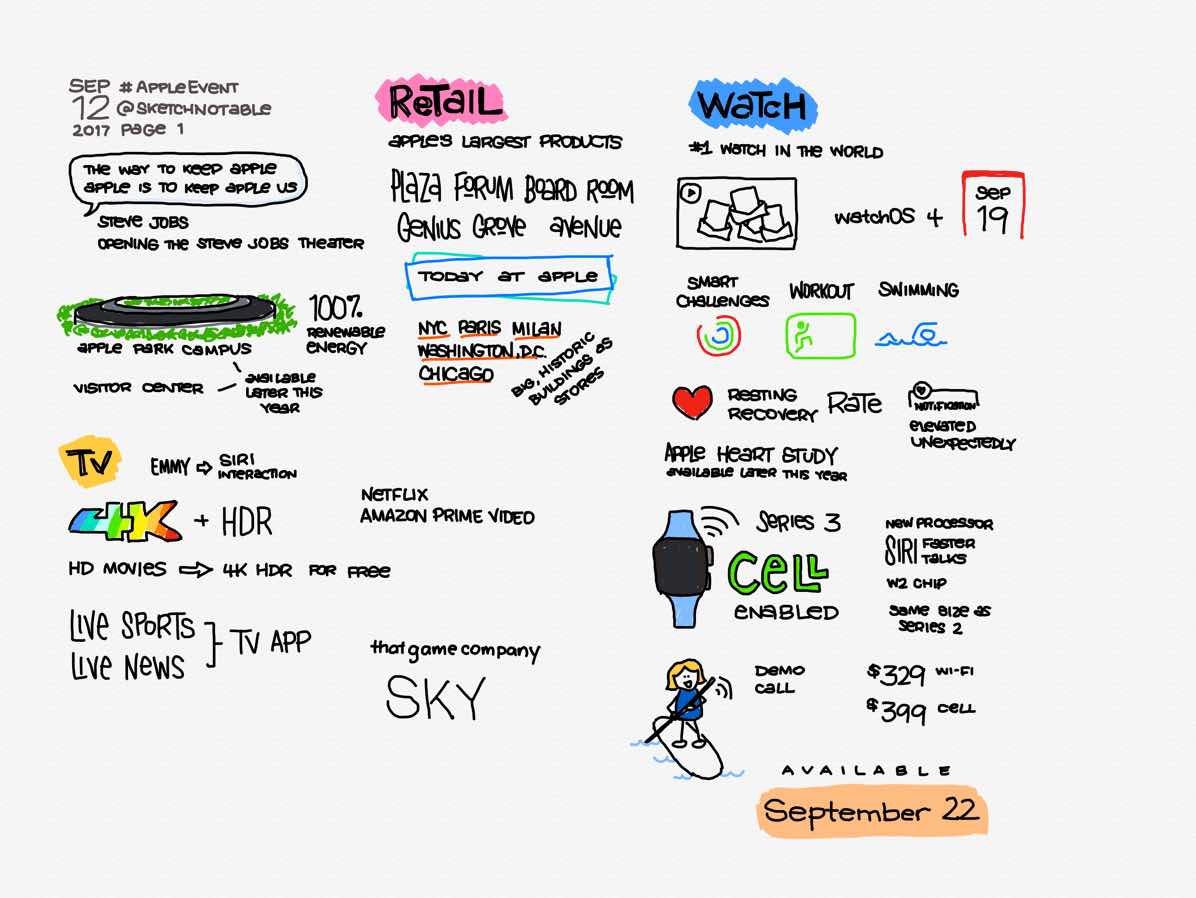 SEP #AppleEvent
12 @SKETCHNOTABLE
2017 PAGE 1
THE WAY TO KEEP APPLE
APPLE IS TO KEEP APPLE US
STEVE JOBS
OPENING THE STEVE JOBS THEATER
100%
RENEWABLE
ENERGY
APPLE PARK CAMPUS
VISITOR CENTER
AVAILABLE
LATER THIS
YEAR
TV
EMMY ⇨ SIRI
INTERACTION
4K + HDR
NETFLIX
AMAZON PRIME VIDEO
HD MOVIES ⇨ 4K HDR FOR FREE
LIVE SPORTS
LIVE NEWS
TV APP
thatgamecompany
SKY
RETAIL
APPLE'S LARGEST PRODUCTS
PLAZA FORUM BOARD ROOM
GENIUS GROVE AVENUE
TODAY AT APPLE
NYC PARIS MILAN
WASHINGTON, D.C.
CHICAGO
BIG, HISTORIC
BUILDINGS AS
STORES
WATCH
#1 WATCH IN THE WORLD
watchOS 4
SEP
19
SMART
CHALLENGES
WORKOUT
SWIMMING
RESTING
RECOVERY
RATE
NOTIFICATION
ELEVATED
UNEXPECTEDLY
APPLE HEART STUDY
AVAILABLE LATER THIS YEAR
SERIES 3
CELL
ENABLED
NEW PROCESSOR
SIRI FASTER
TALKS
W2 CHIP
SAME SIZE AS
SERIES 2
DEMO
CALL
$329 WI-FI
$399 CELL
AVAILABLE
September 22